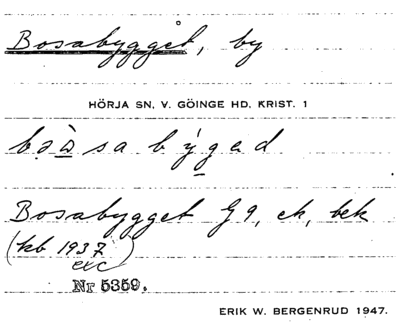 Bosabygget, by
HÖRJA SN, V. GÖINGE HD. KRIST. 1
Bosabygget G9, ek, bek
(kb 1937)
exc
Nr 5359.
ERIK W. BERGENRUD 1947.